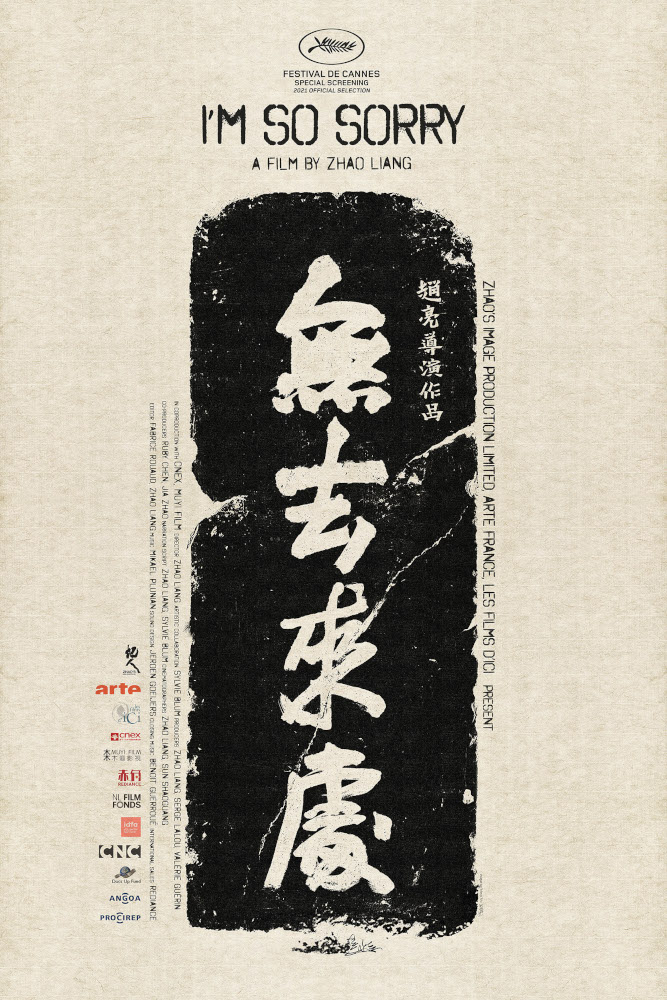 FESTIVAL DE CANNES
SPECIAL SCREENING
2021 OFFICIAL SELECTION
I'M SO SORRY
A FILM BY ZHAO LIANG
ZHAO'S IMAGE PRODUCTION LIMITED, ARTE FRANCE, LES FILMS D'ICI PRESENT
趙亮導演作品
無去來處
IN COPRODUCTION WITH CNEX, MUYI FILM DIRECTOR ZHAO LIANG ARTISTIC COLLABORATION SYLVIE BLUM PRODUCERS ZHAO LIANG, SERGE LALOU, VALÉRIE GUÉRIN
COPRODUCERS RUBY CHEN, JIA ZHAO NARRATION SCRIPT ZHAO LIANG, SYLVIE BLUM CINEMATOGRAPHERS ZHAO LIANG, SUN SHAOGUANG
EDITOR FABRICE ROUAUD, ZHAO LIANG MUSIC MIKAEL PLUNIAN SOUND DESIGN JEROEN GOEIJERS CLOSING MUSIC BENOIT GUERROUÉ INTERNATIONAL SALES REDIANCE
arte
cnex
MUYI FILM
木木羽影視
REDIANCE
NL FILM
FONDS
idfa
CNC
ANGOA
PROCIREP